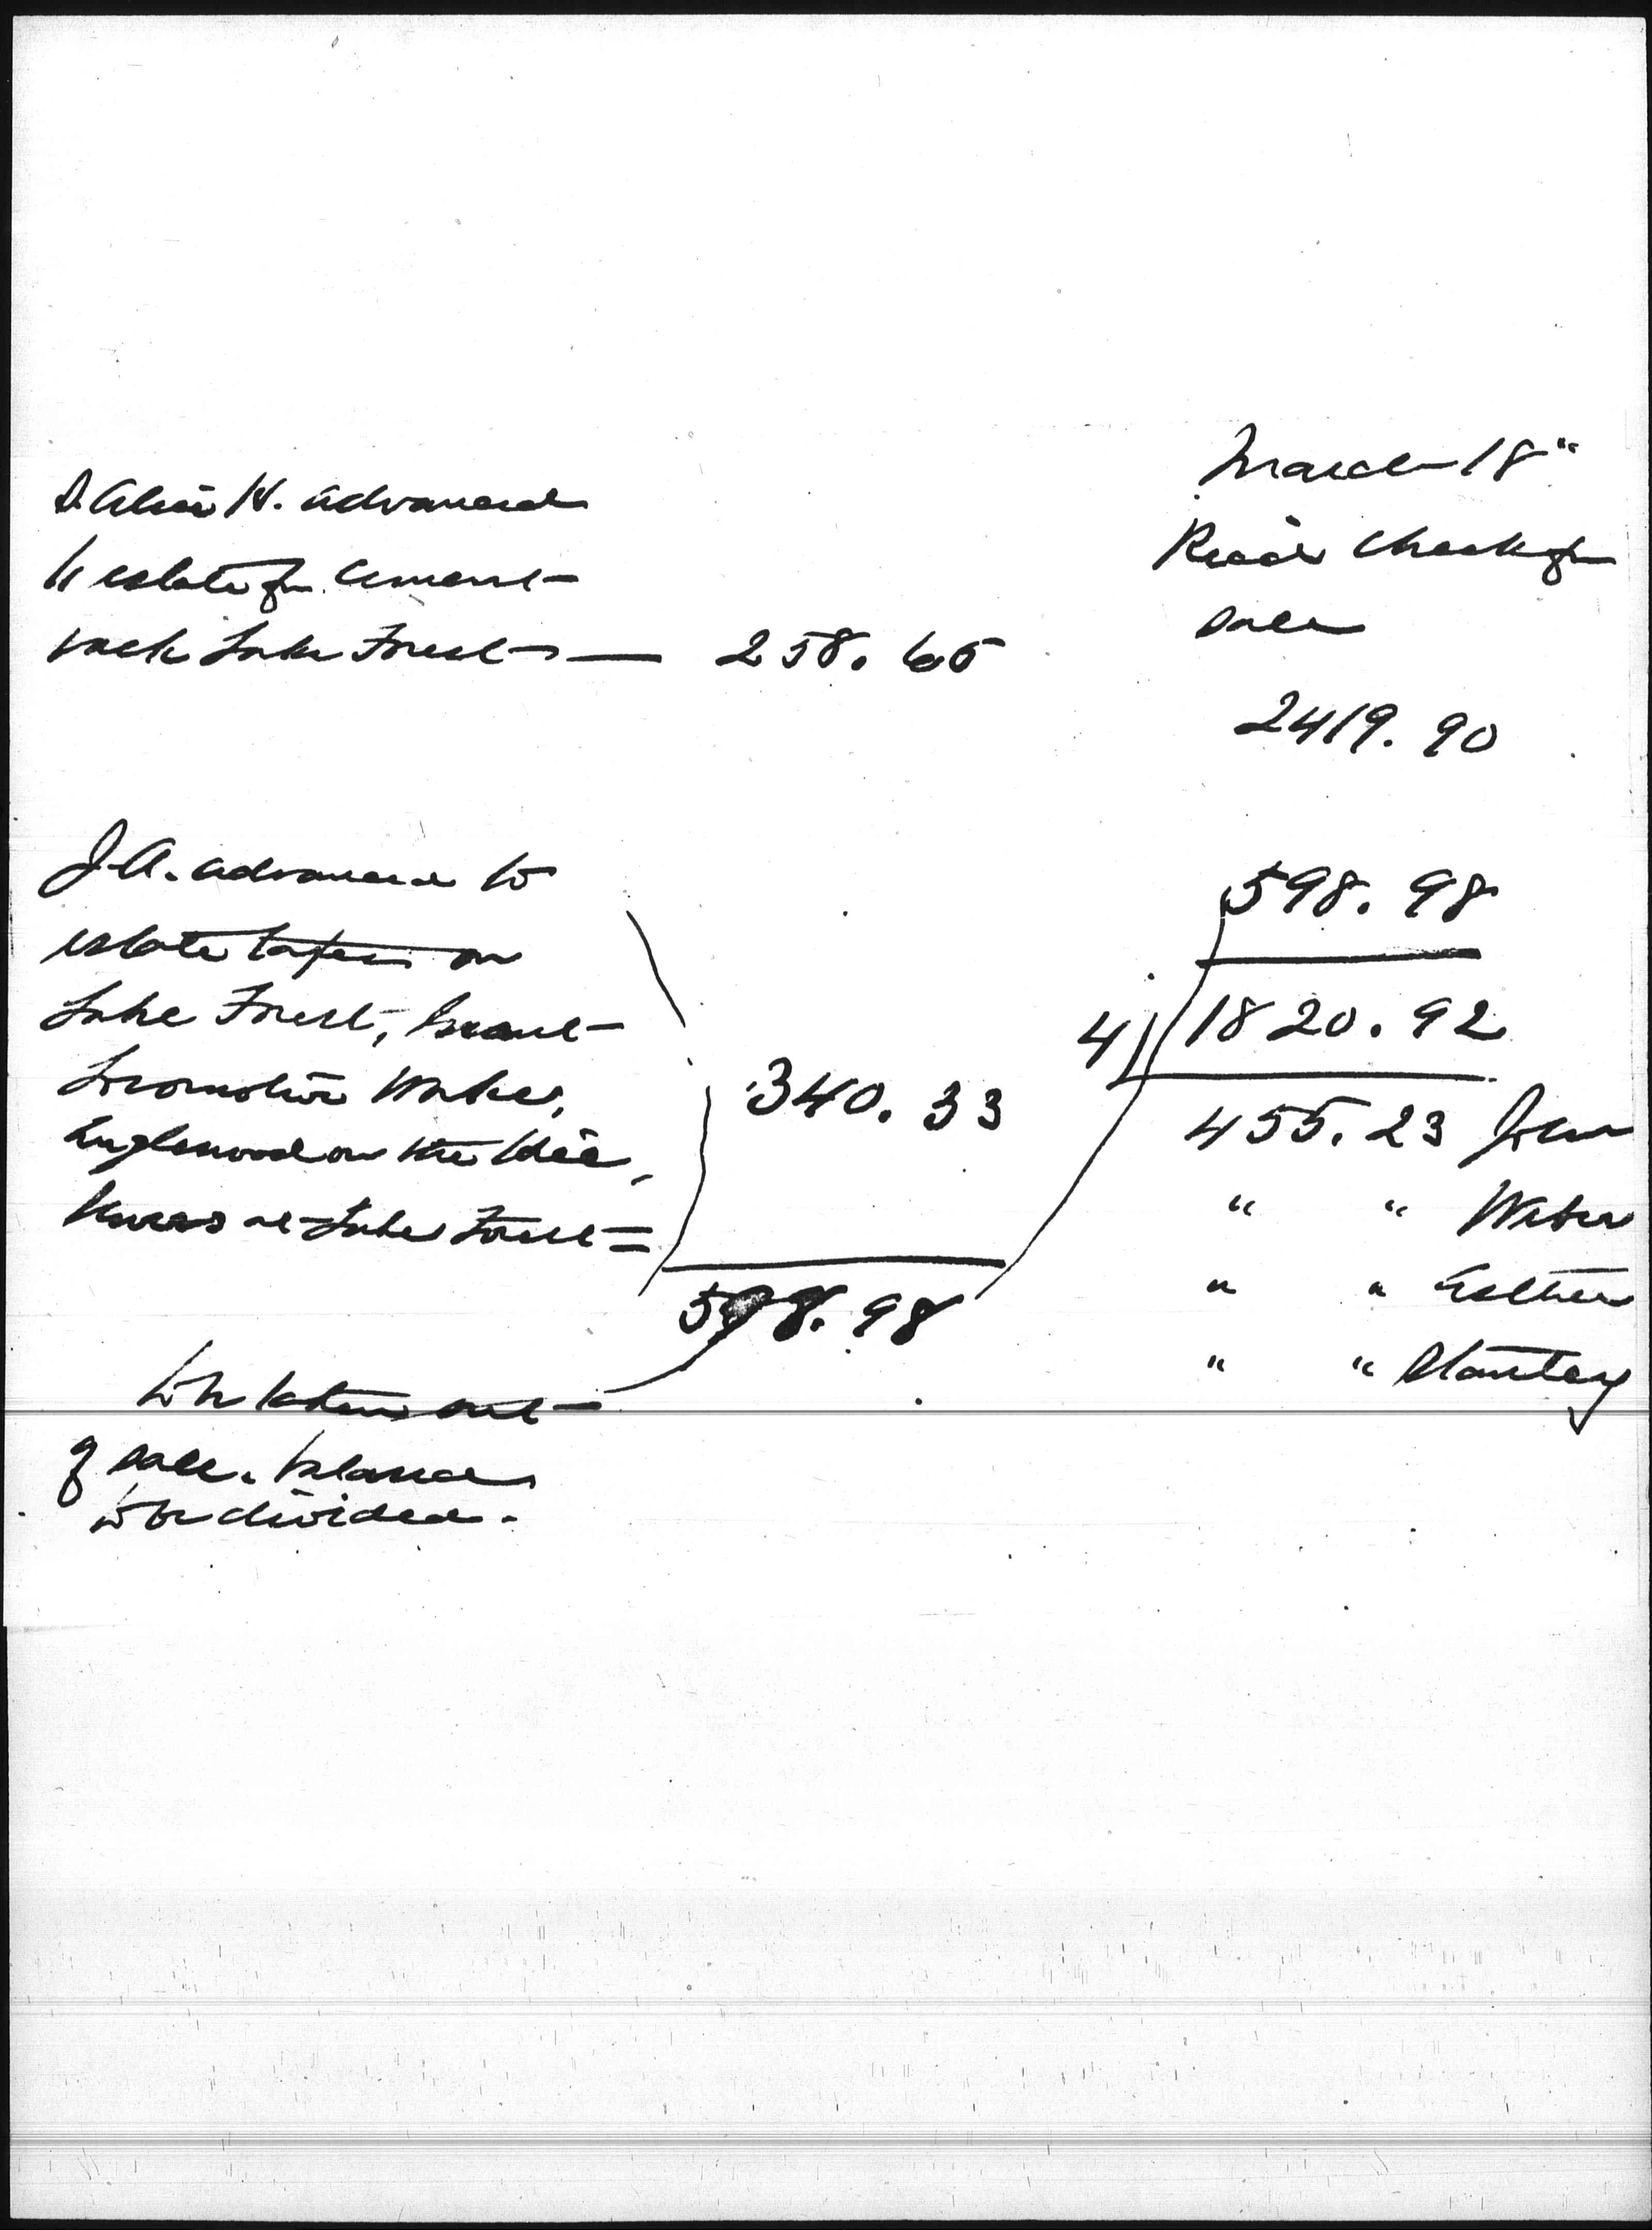 March 18"
Rec'd Check for
sale
2419.90
598.98
4)1820.92
455.23 John
" " Weber
" " Esther
" " Stanley
H. advanced
to estate for Cement
Lake Forest — 258.65
J.A. advanced to
estate taxes on
Lake Forest, Grant
Locomotive Works,
Englewood on the Hill,
at Lake Forest =
340.33
598.98
to be taken out
of sale. balance
to be divided.